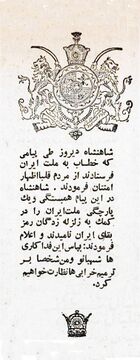 شاهنشاه دیروز طی پیامی
که خطاب به ملت ایران
فرستادند از مردم قلبا اظهار
امتنان فرمودند. شاهنشاه
در این پیام همبستگی ویك
پارچگی ملت ایران را در
کمك به زلزله زدگان رمز
بقای ایران نامیدند و اعلام
فرمودند: بپاس این فداکاری
ها شبهائی ومن شخصا بر
ترمیم خرابی ها نظارت خواهیم
کرد.